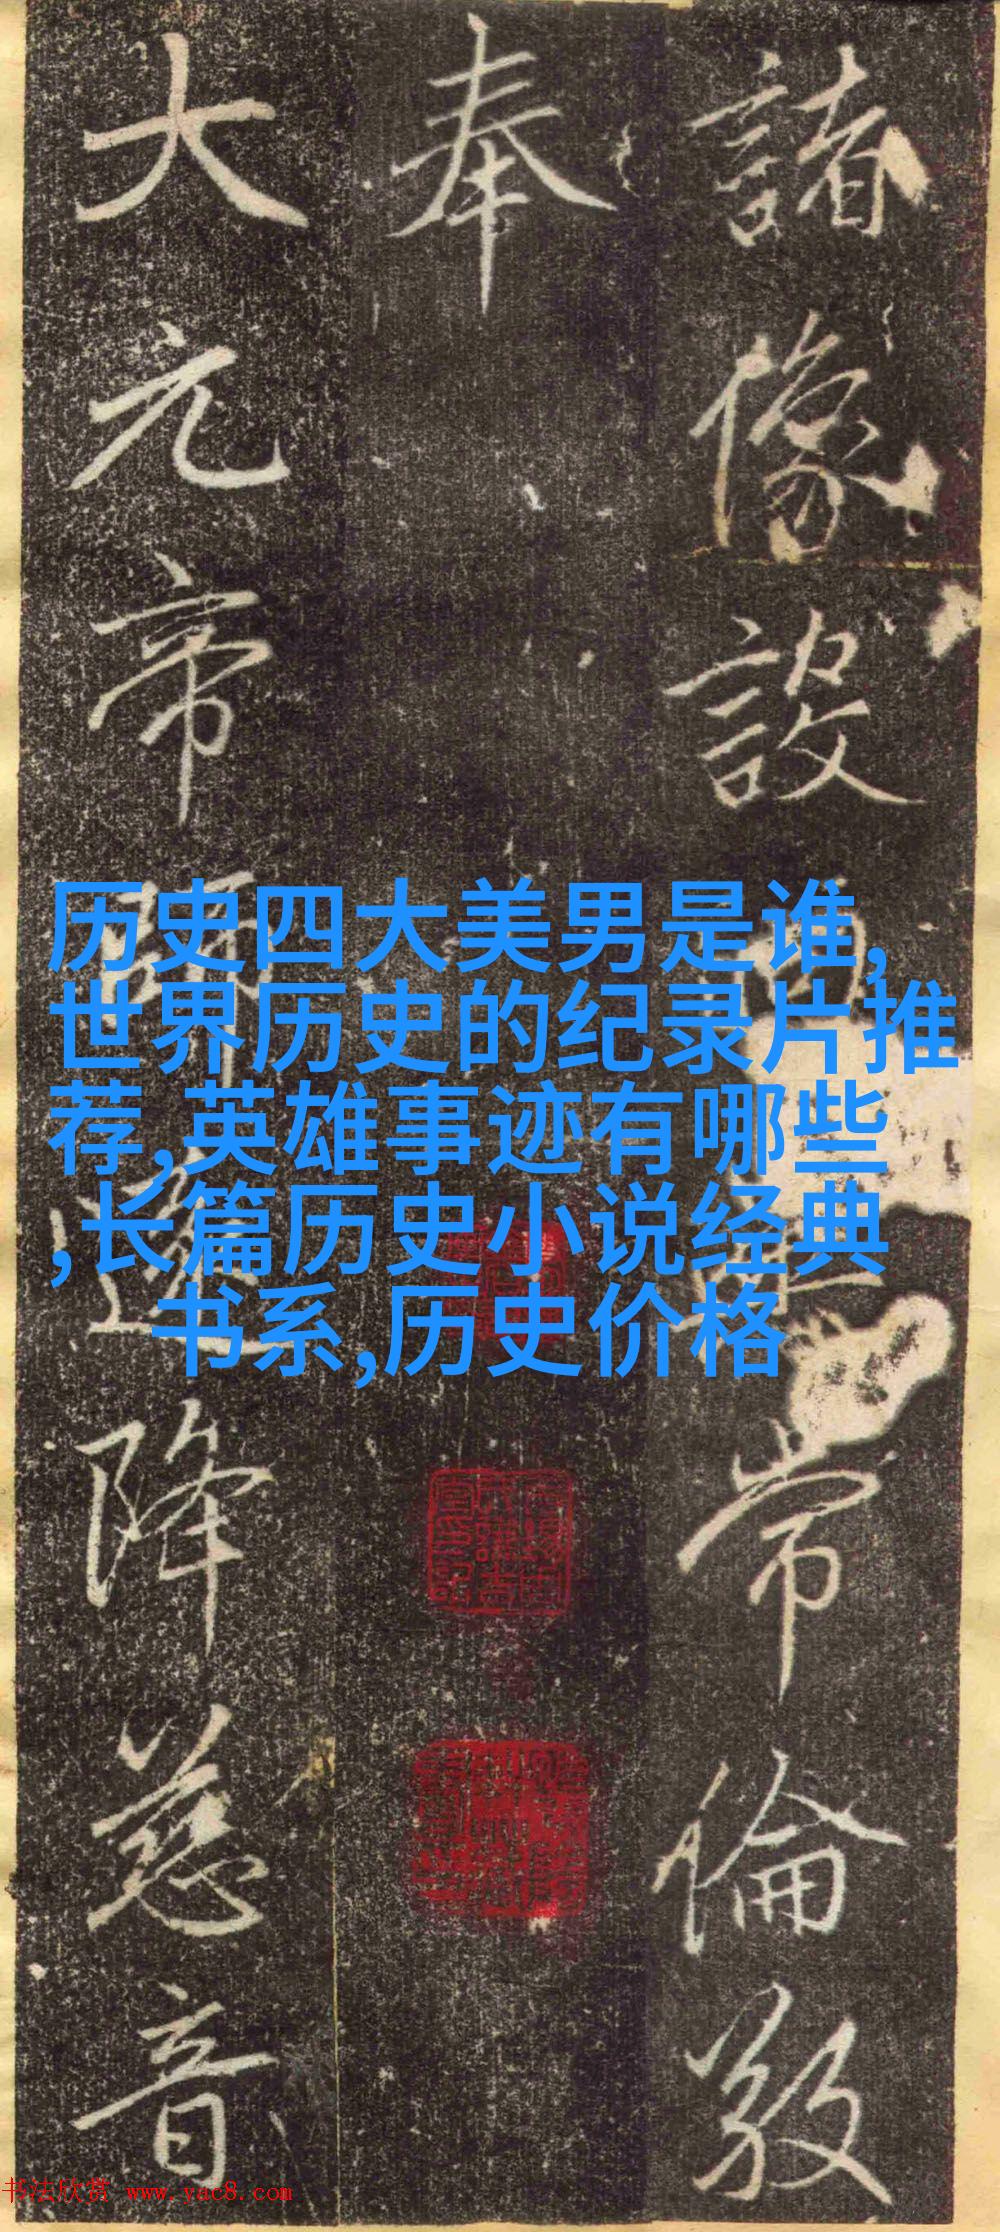 諸像設常倫
奉
大元帝師降慈音
历史四大美男是谁,
世界历史的纪录片推
荐,英雄事迹有哪些
,长篇历史小说经典
书系,历史价格
书法欣赏 www.yac8.com